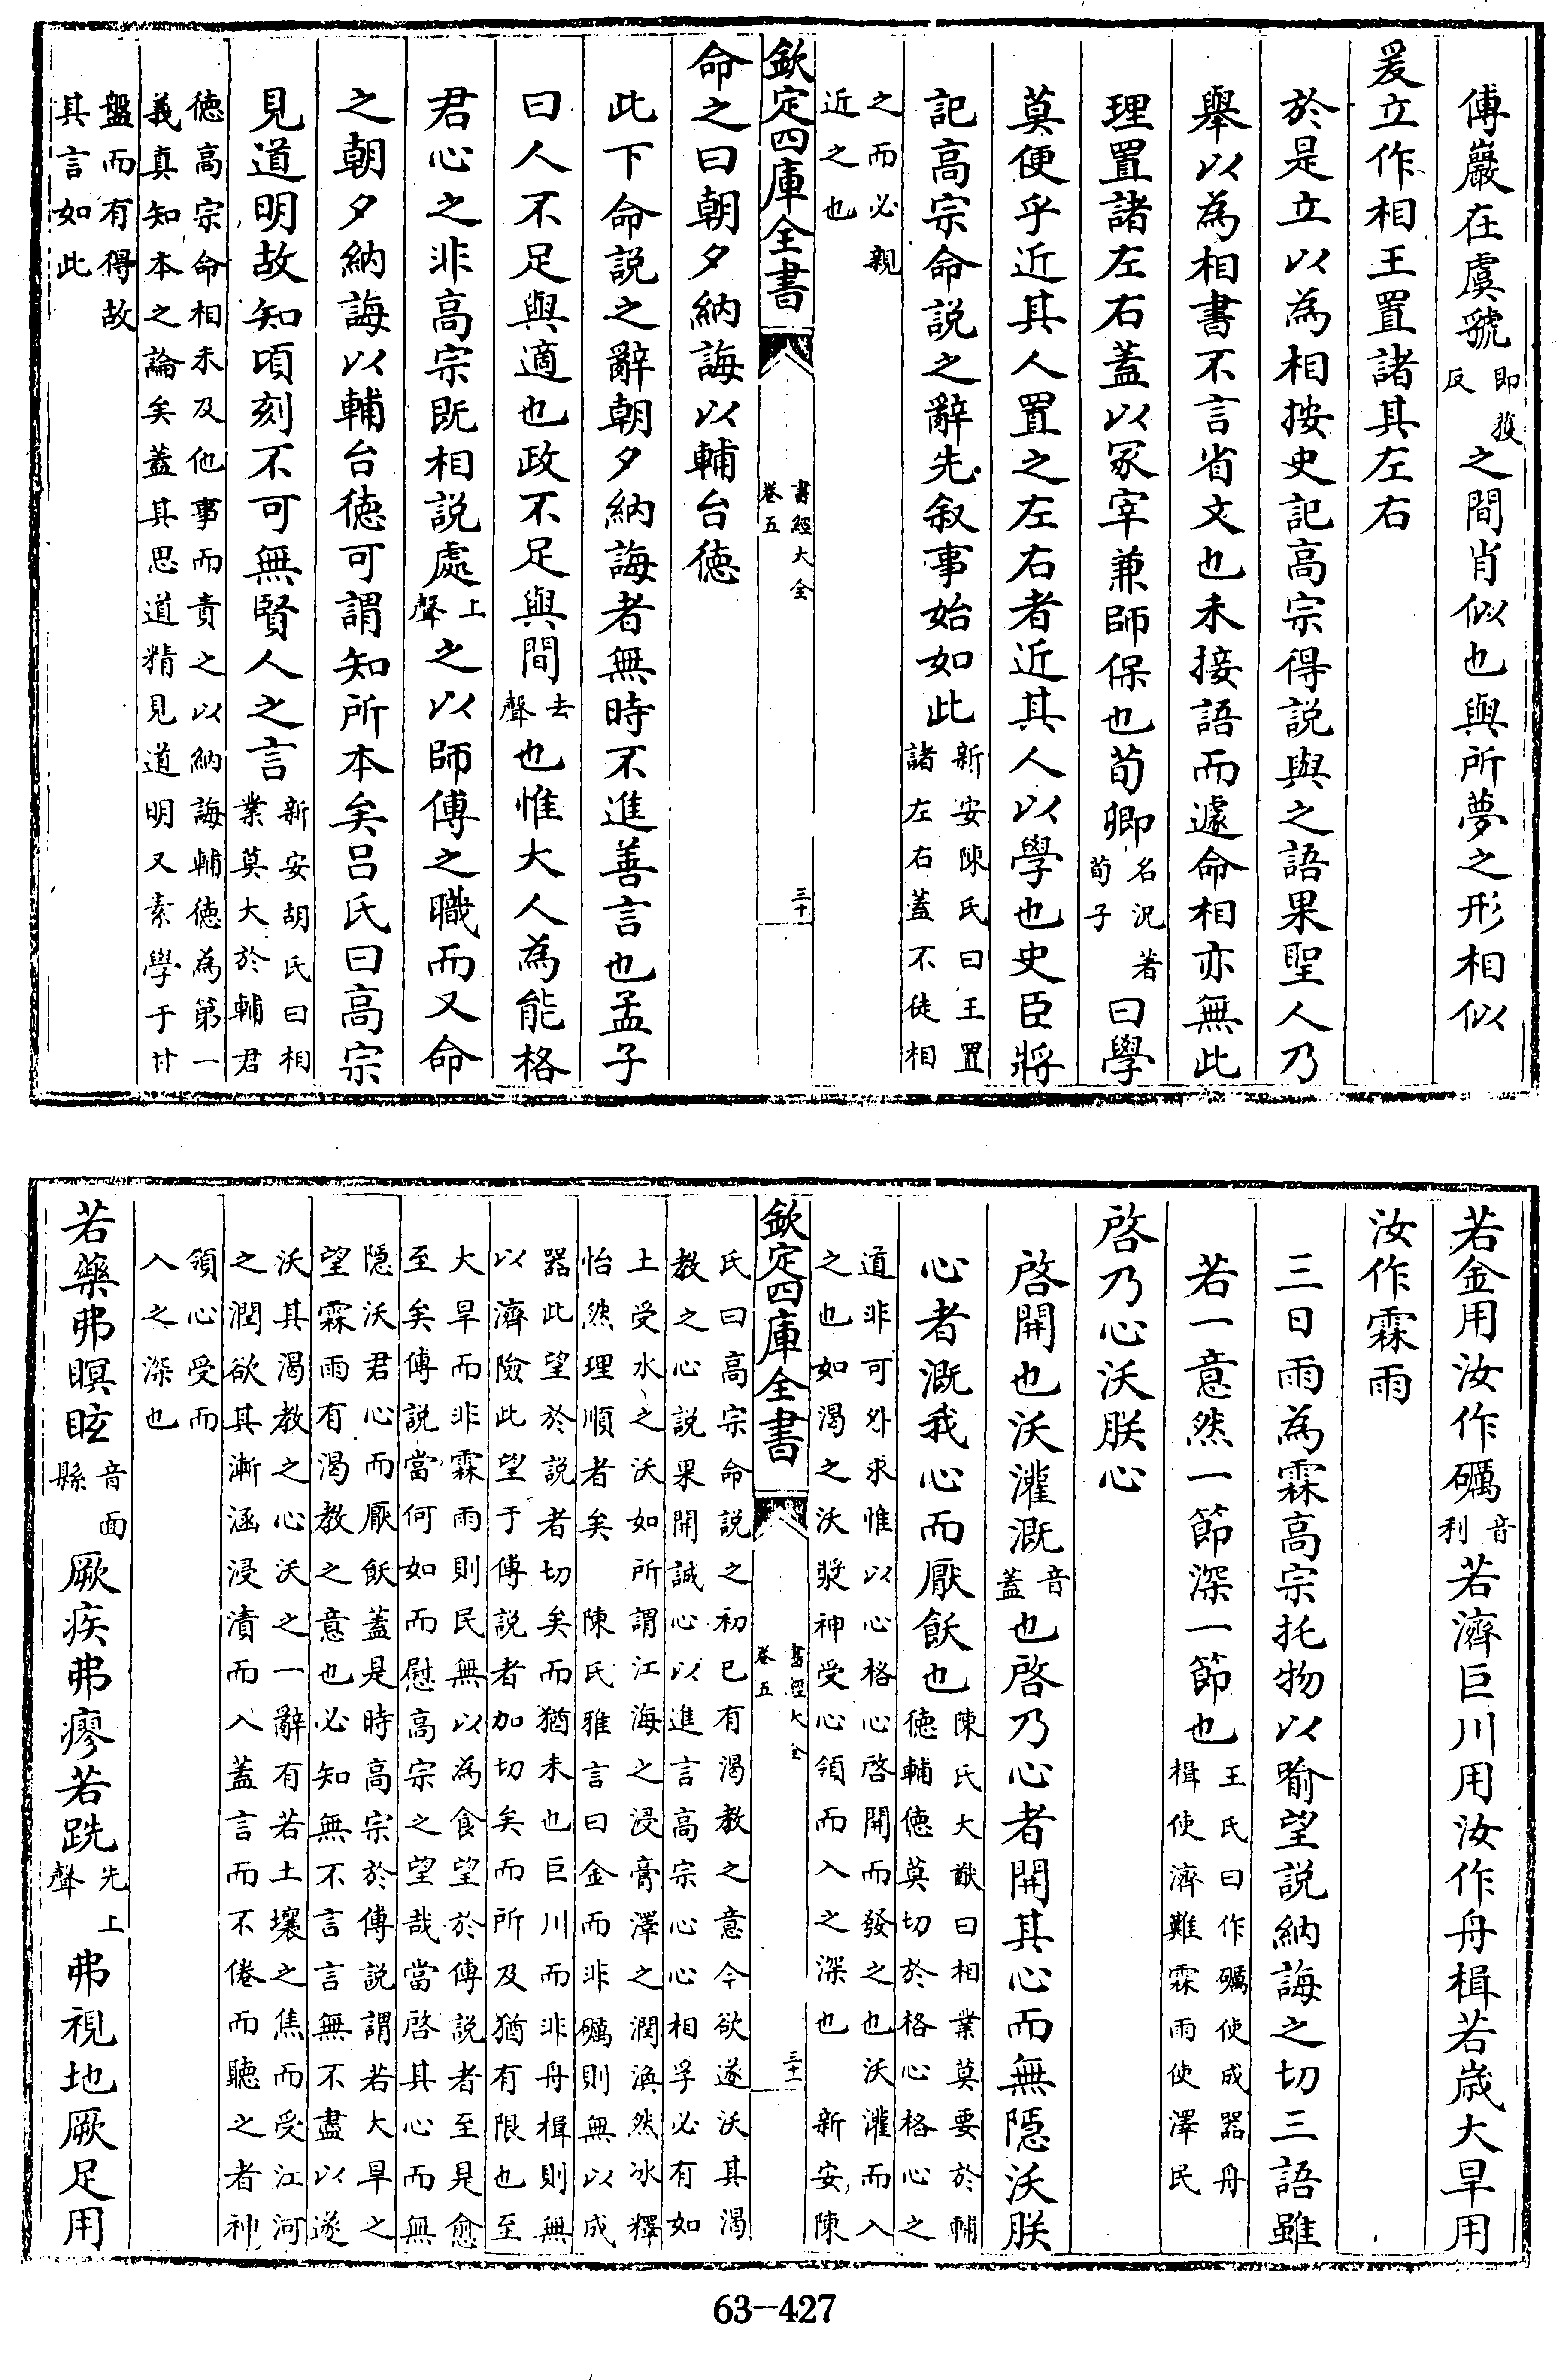 傅巖在虞虢即獲反之間肖似也與所夢之形相似
爰立作相王置諸其左右
於是立以為相按史記高宗得説與之語果聖人乃
舉以為相書不言省文也未接語而遽命相亦無此
理置諸左右蓋以冢宰兼師保也荀卿名況著荀子曰學
莫便乎近其人置之左右者近其人以學也史臣將
記高宗命説之辭先叙事始如此新安陳氏曰王置諸左右蓋不徒相
之而必親近之也
欽定四庫全書 書經大全卷五 三十
命之曰朝夕納誨以輔台徳
此下命説之辭朝夕納誨者無時不進善言也孟子
曰人不足與適也政不足與間去聲也惟大人為能格
君心之非高宗既相説處上聲之以師傅之職而又命
之朝夕納誨以輔台徳可謂知所本矣吕氏曰高宗
見道明故知頃刻不可無賢人之言新安胡氏曰相業莫大於輔君
徳高宗命相未及他事而責之以納誨輔徳為第一
義真知本之論矣蓋其思道精見道明又素學于甘
盤而有得故其言如此
若金用汝作礪音利若濟巨川用汝作舟楫若歳大旱用
汝作霖雨
三日雨為霖高宗托物以喻望説納誨之切三語雖
若一意然一節深一節也王氏曰作礪使成器舟楫使濟難霖雨使澤民
啓乃心沃朕心
啓開也沃灌溉音蓋也啓乃心者開其心而無隠沃朕
心者溉我心而厭飫也陳氏大猷曰相業莫要於輔徳輔徳莫切於格心格心之
道非可外求惟以心格心啓開而發之也沃灌而入
之也如渴之沃漿神受心領而入之深也 新安陳
欽定四庫全書 書經大全卷五 三十一
氏曰高宗命説之初已有渴教之意今欲遂沃其渴
教之心説果開誠心以進言高宗心心相孚必有如
土受水之沃如所謂江海之浸膏澤之潤渙然冰釋
怡然理順者矣 陳氏雅言曰金而非礪則無以成
器此望於説者切矣而猶未也巨川而非舟楫則無
以濟險此望于傅説者加切矣而所及猶有限也至
大旱而非霖雨則民無以為食望於傅説者至是愈
至矣傅説當何如而慰高宗之望哉當啓其心而無
隠沃君心而厭飫蓋是時高宗於傅説謂若大旱之
望霖雨有渴教之意也必知無不言言無不盡以遂
沃其渴教之心沃之一辭有若土壤之焦而受江河
之潤欲其漸涵浸漬而入蓋言而不倦而聽之者神
領心受而入之深也
若藥弗瞑眩音面縣厥疾弗瘳若跣先上聲弗視地厥足用
63-427